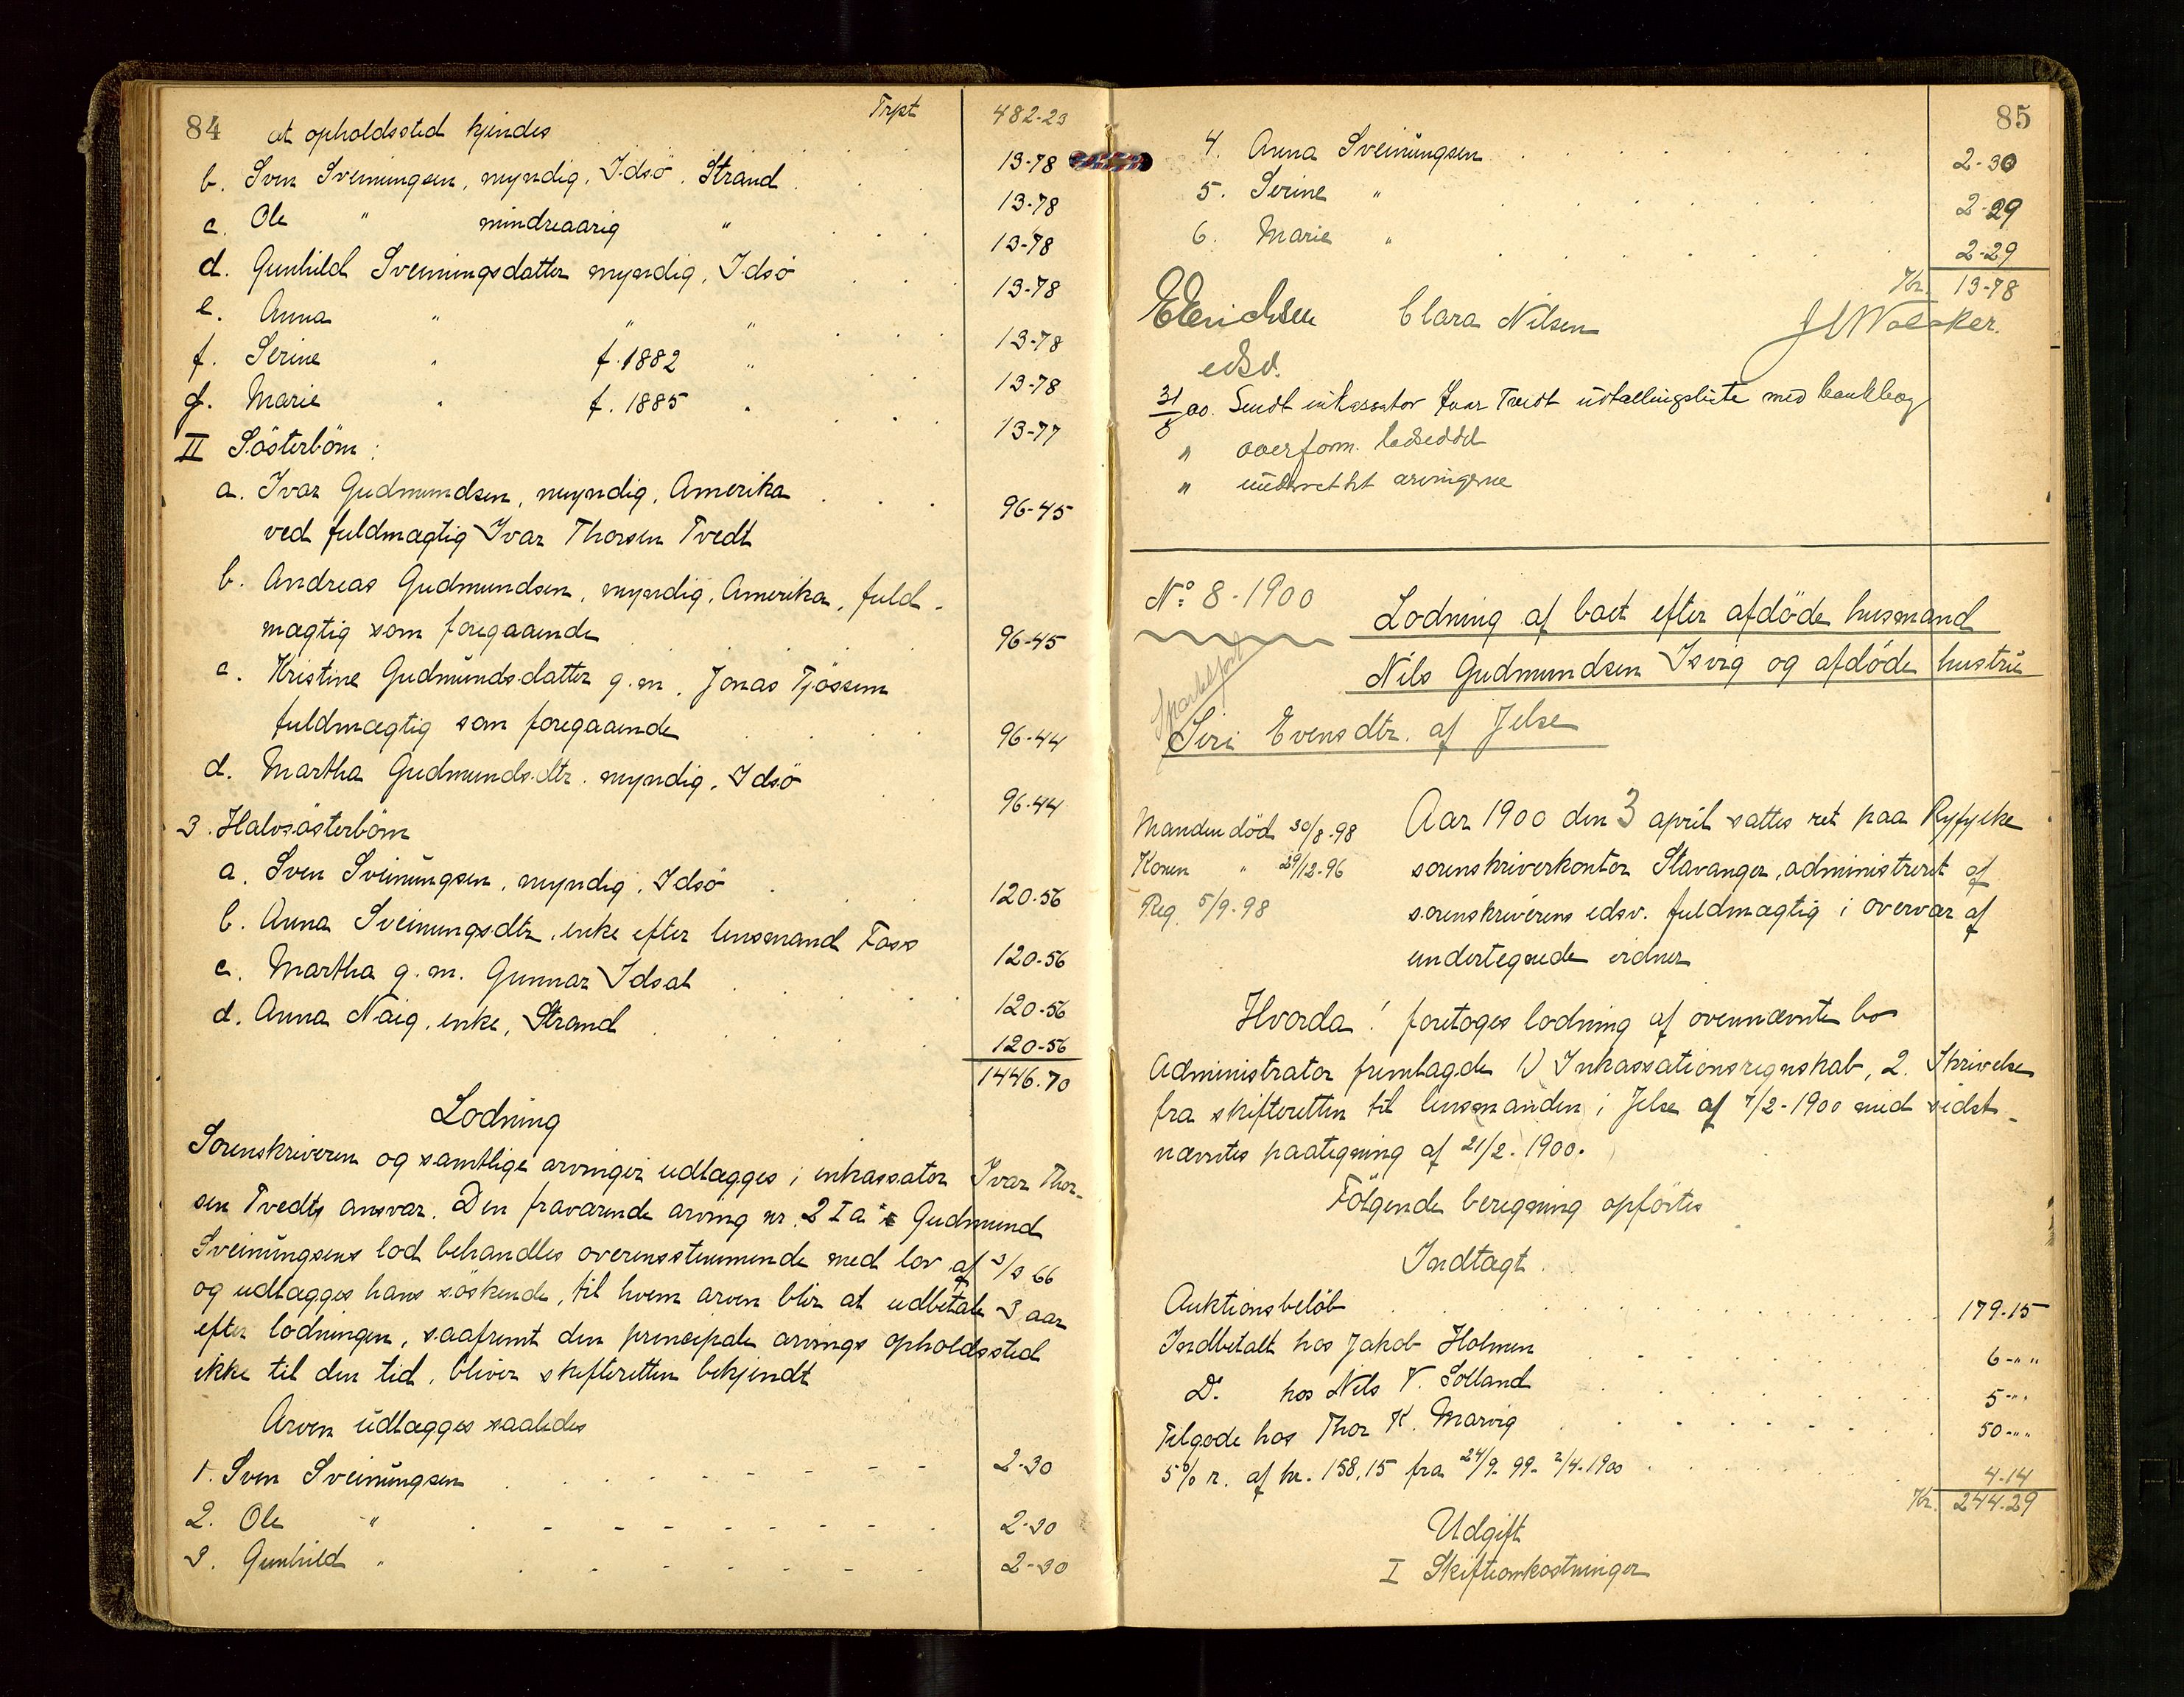 84
Trpt 482-23
at opholdssted kjendes 13-78
b. Sven Sveinungsen, myndig, Idsö, Strand 13-78
c. Ole " mindreaarig " 13-78
d. Gunhild Sveinungsdatter myndig, Idsö 13-78
e. Anna " " " 13-78
f. Serine " f. 1882 " 13-78
g. Marie " f. 1885 " 13-77
II Sösterbörn:
a. Ivar Gudmundsen, myndig, Amerika 96-45
ved fuldmægtig Ivar Thorsen Tvedt
b. Andreas Gudmundsen, myndig, Amerika, fuld-
mægtig som foregaaende 96-45
c. Kristine Gudmundsdatter g.m. Jonas Tjössem
fuldmægtig som foregaaende 96-44
d. Martha Gudmundsdtr. myndig, Idsö 96-44
3. Halvsösterbörn
a. Sven Sveinungsen, myndig, Idsö 120-56
b. Anna Sveinungsdtr, enke efter lensmand Foss 120-56
c. Martha g.m. Gunnar Idsal 120-56
d. Anna Naig, enke, Strand 120-56
1446.70
Lodning
Sorenskriveren og samtlige arvinger udlægges i inkassator Ivar Thor-
sen Tvedts ansvar. Den fraværende arving nr. 2 I a Gudmund
Sveinungsens lod behandles overensstemmende med lov af 3/3 66
og udlægges hans söskende, til hvem arven blir at udbetale 3 aar
efter lodningen, saafremt den principale arvings opholdssted
ikke til den tid, bliver skifteretten bekjendt
Arven udlægges saaledes
1. Sven Sveinungsen 2-30
2. Ole " 2-30
3. Gunhild " 2-30
85
4. Anna Sveinungsen 2-30
5. Serine " 2-29
6. Marie " 2-29
Kr. 13-78
E Erichsen Clara Nilsen
edsv.
31/8 00. Sendt inkassator Ivar Tvedt udtællingsliste med bankbog
" overform. lodseddel
" underrettet arvingerne
No. 8-1900
Lodning af boet efter afdöde husmand
Nils Gudmundsen Isvig og afdöde hustru
Siri Evensdtr. af Jelse
Manden död 30/8-98
Konen " 29/12-96
Reg. 5/9-98
Aar 1900 den 3 april sattes ret paa Ryfylke
sorenskriverkontor Stavanger, administreret af
sorenskriverens edsv. fuldmægtig i overvær af
undertegnede vidner
Hvorda! foretoges lodning af ovennævnte bo
Administrator fremlagde 1) Inkassationsregnskab, 2. Skrivelse
fra skifteretten til lensmanden i Jelse af 7/2-1900 med sidst-
nævntes paategning af 21/2-1900.
Fölgende beregning opförtes
Indtægt
Auktionsbelöb 179-15
Indbetalt hos Jakob Holmen 6-" "
Do. hos Nils V. Solland 5-" "
Tilgode hos Thor K. Marvig 50-" "
5% r. af kr. 158,15 fra 24/9-99-2/4-1900 4-14
Kr. 244.29
Udgift
I Skifteomkostninger